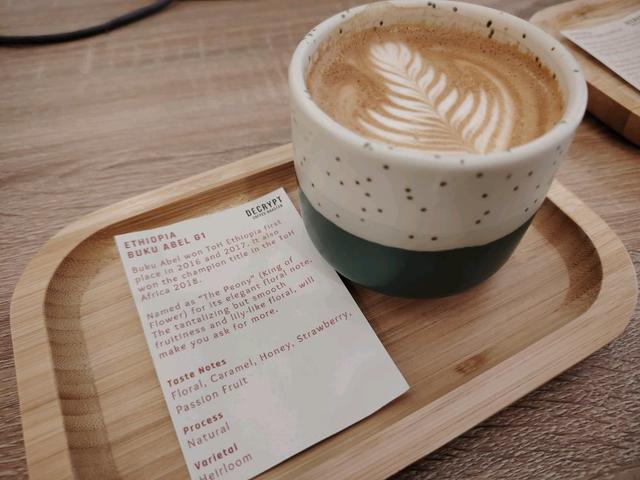 DECRYPT
COFFEE ROASTER
ETHIOPIA
BUKU ABEL G1
Buku Abel won ToH Ethiopia first
place in 2016 and 2017. It also
won the champion title in the ToH
Africa 2018.
Named as "The Peony" (King of
Flower) for its elegant floral note.
The tantalizing but smooth
fruitiness and lily-like floral, will
make you ask for more.
Taste Notes
Floral, Caramel, Honey, Strawberry,
Passion Fruit
Process
Natural
Varietal
Heirloom